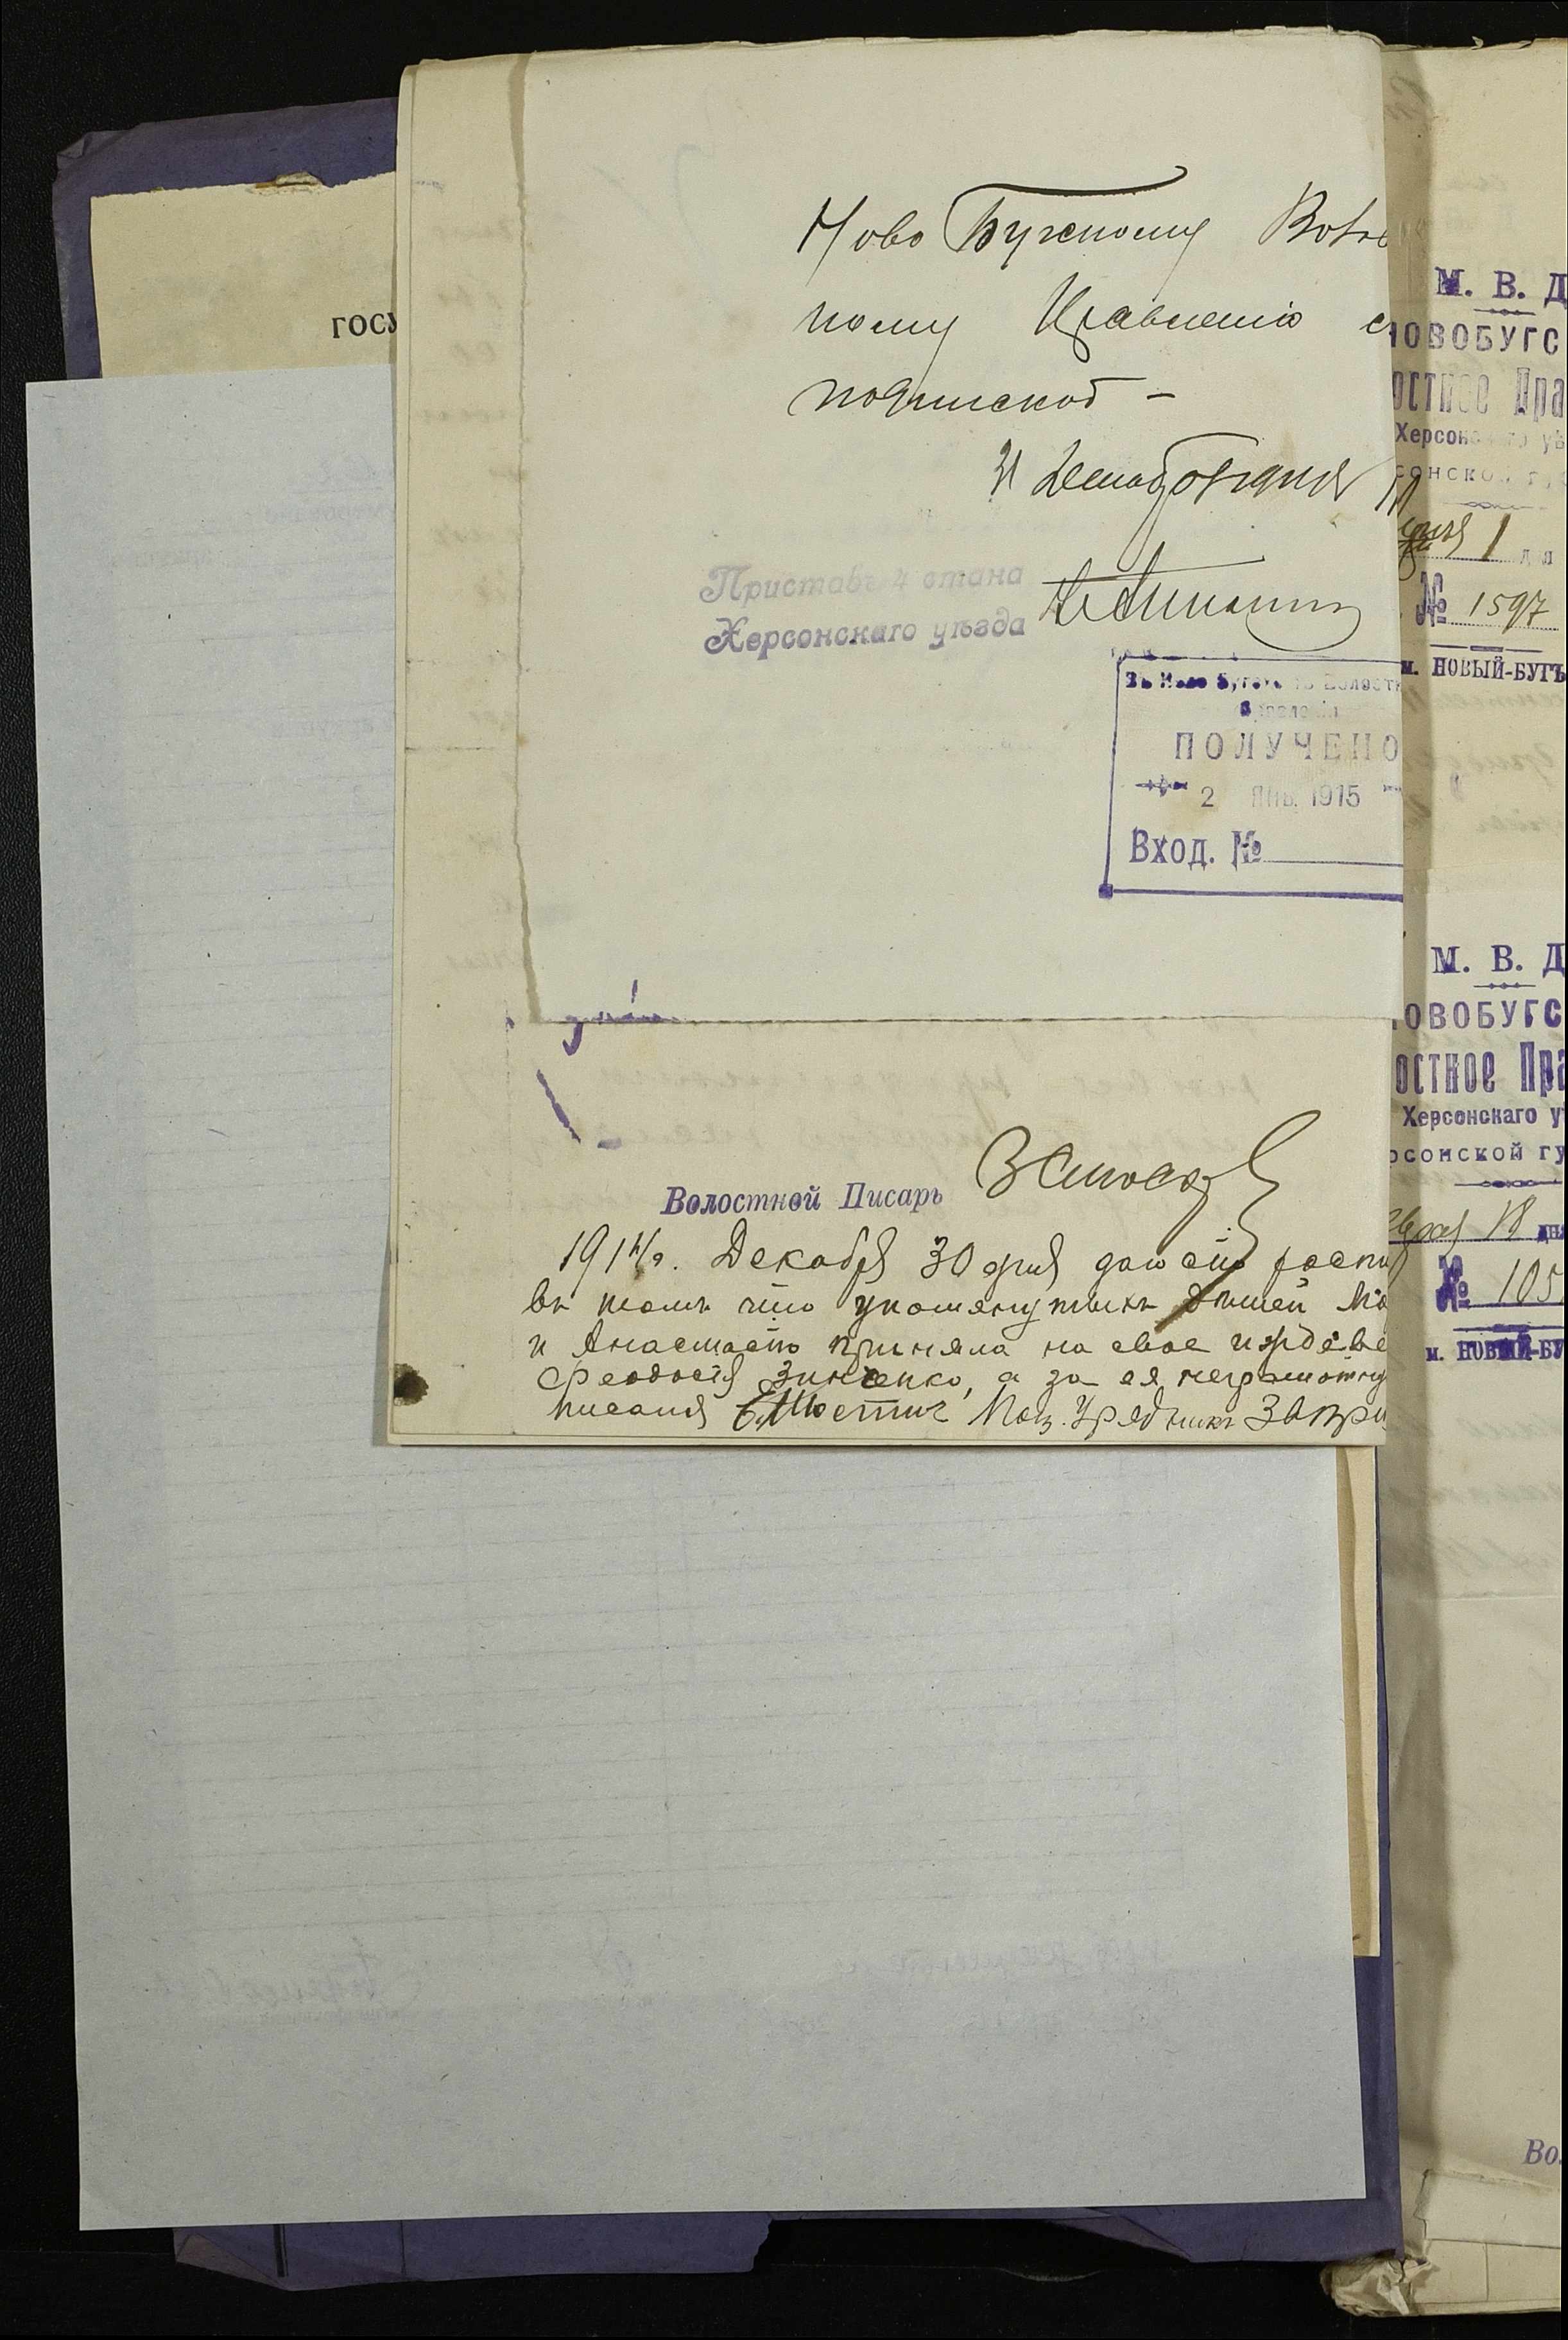 ГОСУ
Ново Бугскому Волос
ному Правленію с
подпиской —
31 Декабря дня
Приставъ 4 стана
Херсонскаго уѣзда
Въ Ново Бугск Волостн
Правленіи
ПОЛУЧЕНО
2 ЯНВ. 1915
Вход. №
Волостной Писарь
1914 г. Декабря 30 дня даю сію роспи
въ томъ что упомянутыхъ дѣтей Ма
и Анастасію приняла на свое иждиве
Феодосія Зинченко, а за ея неграмотну
Пол. Урядникъ
М. В. Д
НОВОБУГС
ОСТНОЕ Пра
Херсонскаго уѣ
сонской гу
1 дня
№ 1597
м. НОВЫЙ-БУГЪ
М. В. Д
ОВОБУГС
ОСТНОЕ Пра
Херсонскаго у
рсонской гу
18 дня
№ 105
м. НОВЫЙ-БУ
Во